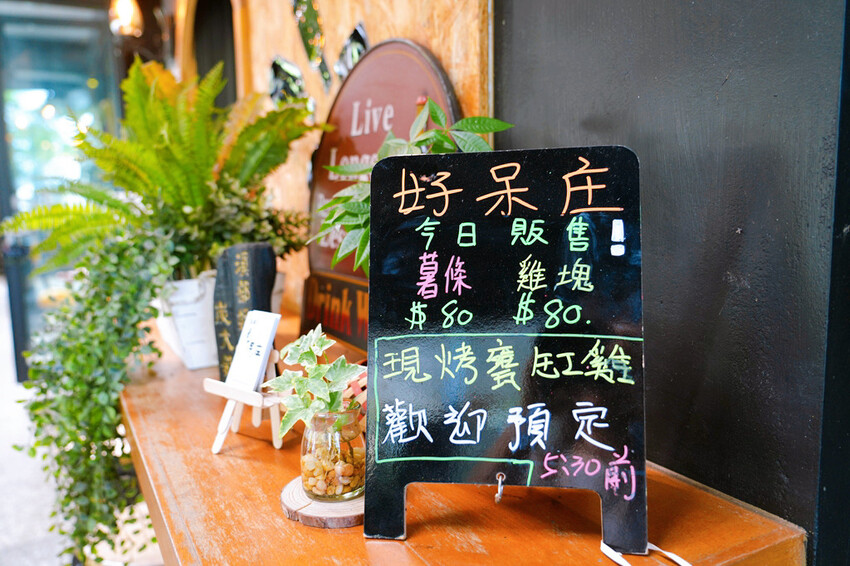 好呆庄
今日販售
薯條 雞塊
$80 $80.
現烤甕缸雞
歡迎預定
5:30前
Live